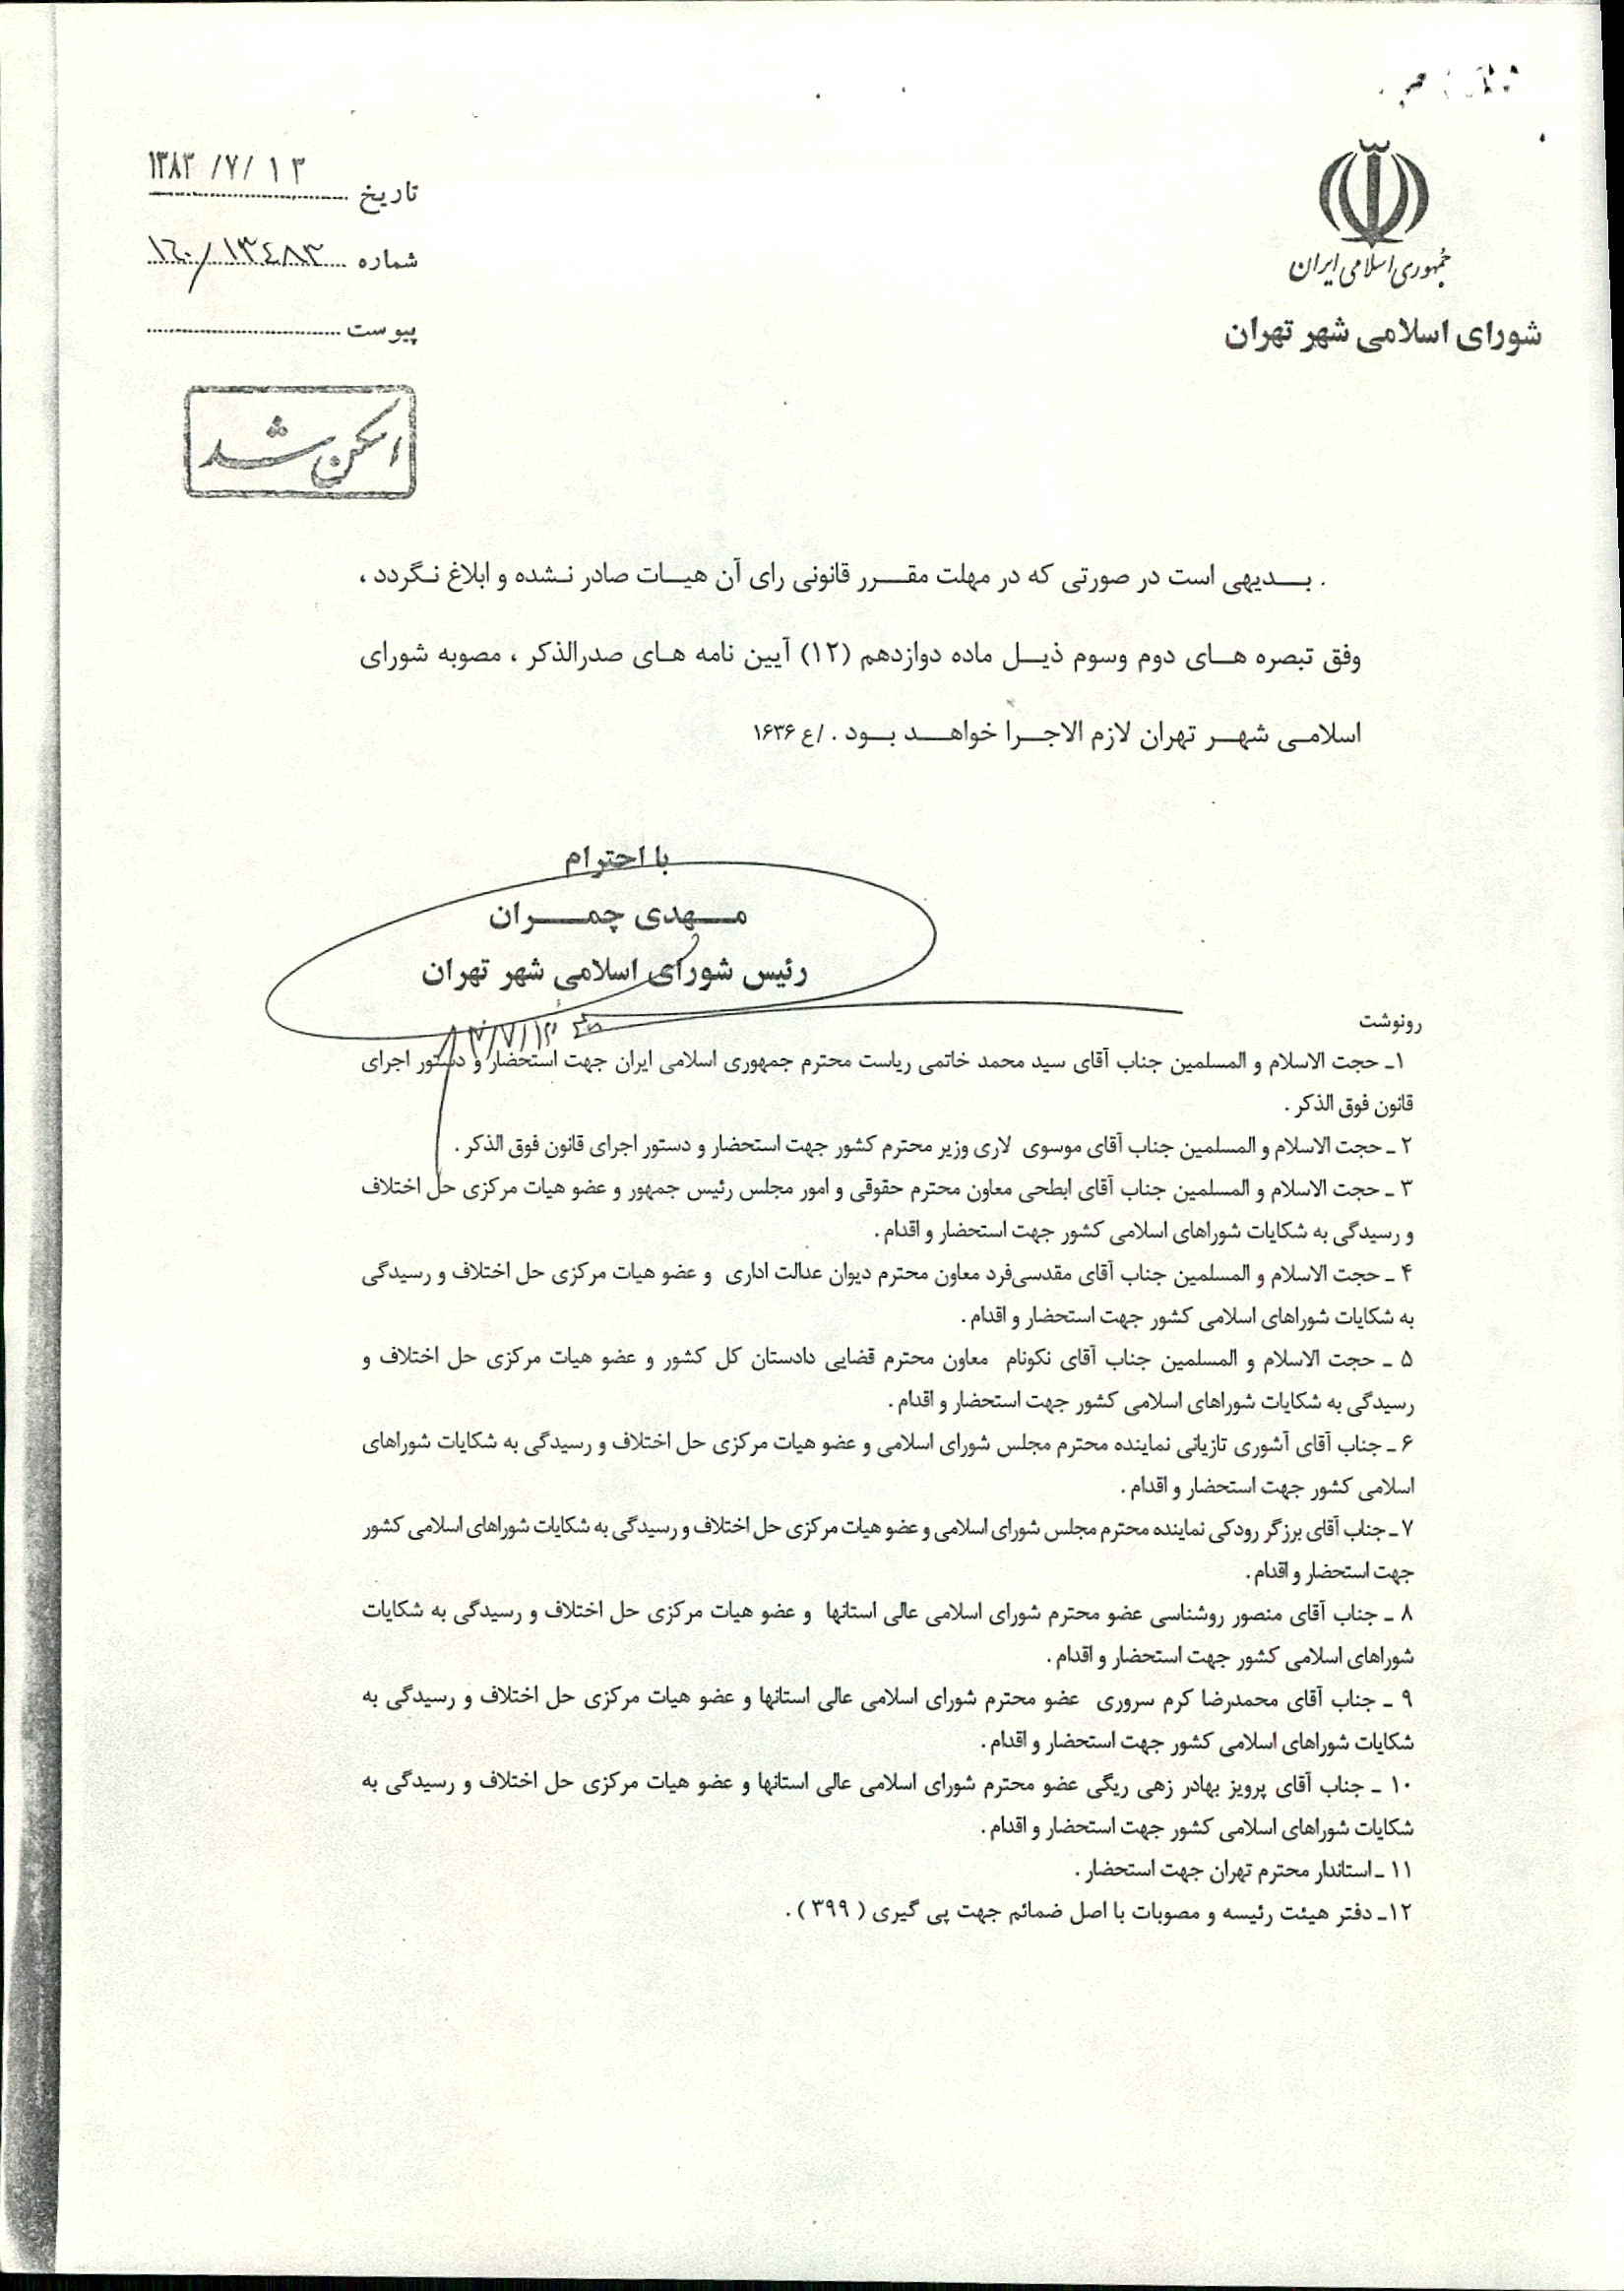 جمهوری اسلامی ایران
شورای اسلامی شهر تهران
تاریخ ۱۳۸۳/۷/۱۳
شماره ۱۶۰/۱۳۴۸۳
پیوست
اسکن شد
. بـــدیهی است در صورتی که در مهلت مقـــرر قانونی رای آن هیـات صادر نـشده و ابلاغ نـگردد ،
وفق تبصره هـای دوم وسوم ذیـل ماده دوازدهم (۱۲) آیین نامه هـای صدرالذکر ، مصوبه شورای
اسلامـی شهـر تهران لازم الاجـرا خواهـد بـود . /ع ۱۶۳۶
با احترام
مـهدی چمـران
رئیس شورای اسلامی شهر تهران
رونوشت
۱ـ حجت الاسلام و المسلمین جناب آقای سید محمد خاتمی ریاست محترم جمهوری اسلامی ایران جهت استحضار و دستور اجرای
قانون فوق الذکر .
۲ ـ حجت الاسلام و المسلمین جناب آقای موسوی لاری وزیر محترم کشور جهت استحضار و دستور اجرای قانون فوق الذکر .
۳ ـ حجت الاسلام و المسلمین جناب آقای ابطحی معاون محترم حقوقی و امور مجلس رئیس جمهور و عضو هیات مرکزی حل اختلاف
و رسیدگی به شکایات شوراهای اسلامی کشور جهت استحضار و اقدام .
۴ ـ حجت الاسلام و المسلمین جناب آقای مقدسی‌فرد معاون محترم دیوان عدالت اداری و عضو هیات مرکزی حل اختلاف و رسیدگی
به شکایات شوراهای اسلامی کشور جهت استحضار و اقدام .
۵ ـ حجت الاسلام و المسلمین جناب آقای نکونام معاون محترم قضایی دادستان کل کشور و عضو هیات مرکزی حل اختلاف و
رسیدگی به شکایات شوراهای اسلامی کشور جهت استحضار و اقدام .
۶ ـ جناب آقای آشوری تازیانی نماینده محترم مجلس شورای اسلامی و عضو هیات مرکزی حل اختلاف و رسیدگی به شکایات شوراهای
اسلامی کشور جهت استحضار و اقدام .
۷ ـ جناب آقای برزگر رودکی نماینده محترم مجلس شورای اسلامی و عضو هیات مرکزی حل اختلاف و رسیدگی به شکایات شوراهای اسلامی کشور
جهت استحضار و اقدام .
۸ ـ جناب آقای منصور روشناسی عضو محترم شورای اسلامی عالی استانها و عضو هیات مرکزی حل اختلاف و رسیدگی به شکایات
شوراهای اسلامی کشور جهت استحضار و اقدام .
۹ ـ جناب آقای محمدرضا کرم سروری عضو محترم شورای اسلامی عالی استانها و عضو هیات مرکزی حل اختلاف و رسیدگی به
شکایات شوراهای اسلامی کشور جهت استحضار و اقدام .
۱۰ ـ جناب آقای پرویز بهادر زهی ریگی عضو محترم شورای اسلامی عالی استانها و عضو هیات مرکزی حل اختلاف و رسیدگی به
شکایات شوراهای اسلامی کشور جهت استحضار و اقدام .
۱۱ ـ استاندار محترم تهران جهت استحضار .
۱۲ـ دفتر هیئت رئیسه و مصوبات با اصل ضمائم جهت پی گیری ( ۳۹۹ ) .